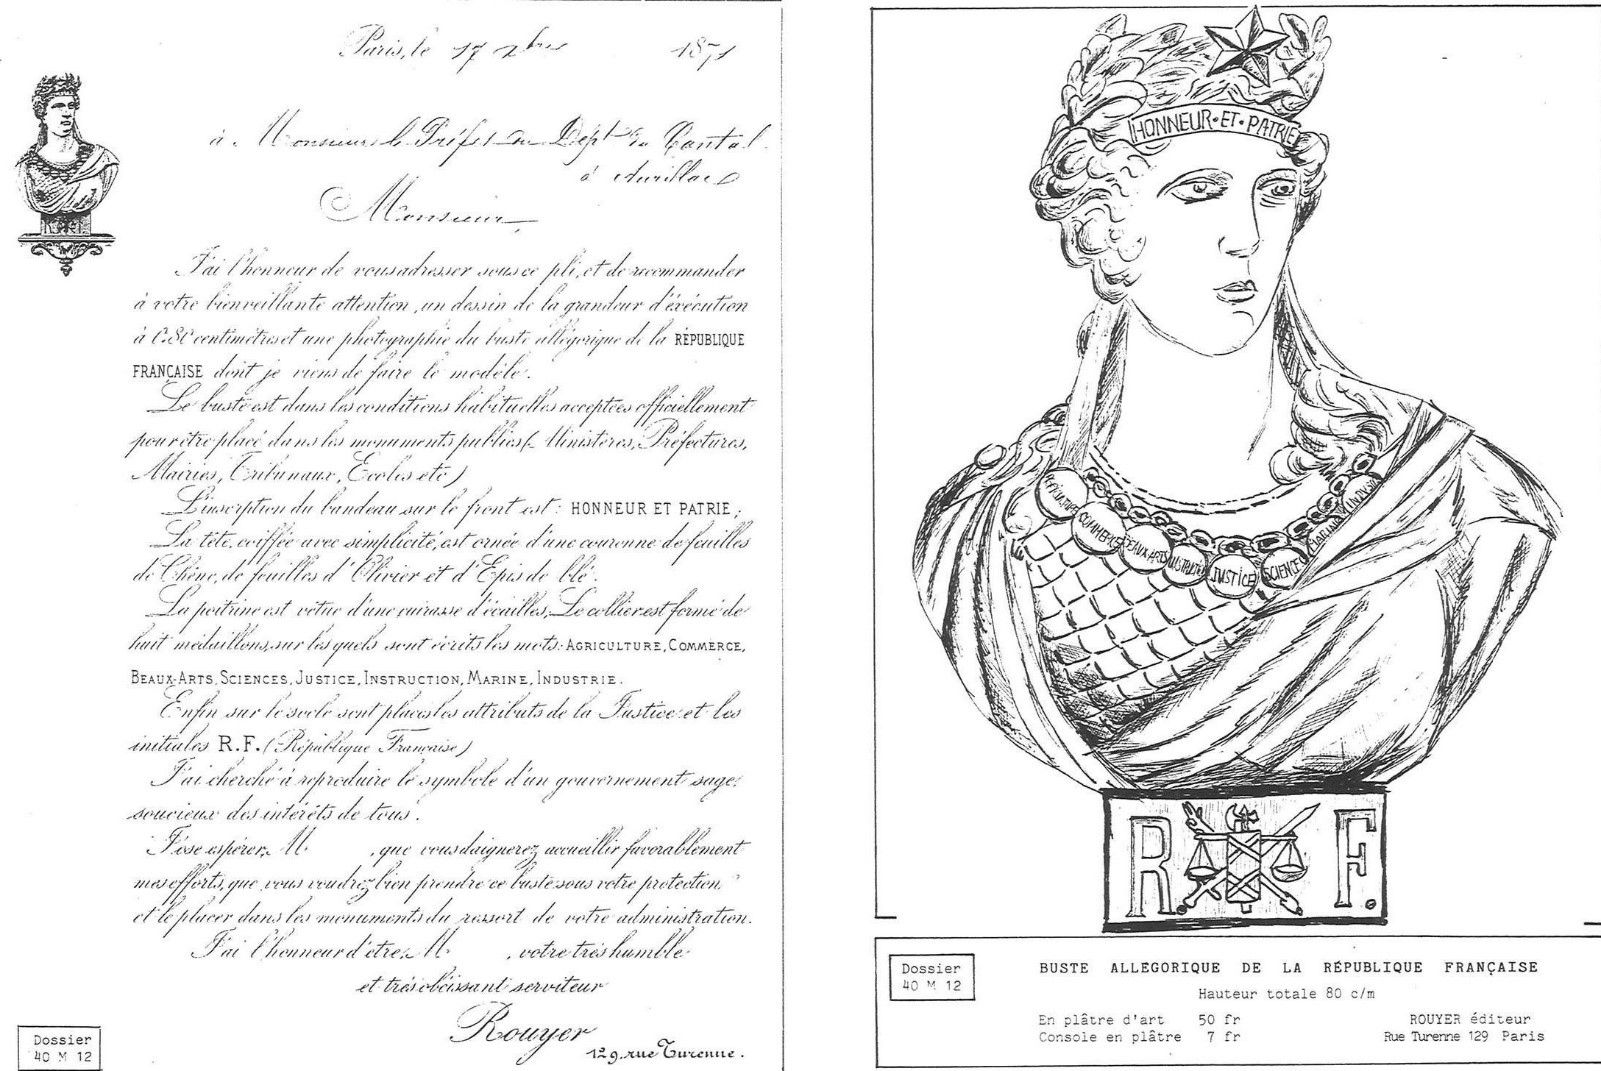 Paris, le 17 Xbre 1871
à Monsieur le Préfet du Dépt du Cantal
à Aurillac
Monsieur,
J'ai l'honneur de vous adresser sous ce pli, et de recommander
à votre bienveillante attention, un dessin de la grandeur d'éxécution
à 0.80 centimètres et une photographie du buste allégorique de la RÉPUBLIQUE
FRANÇAISE dont je viens de faire le modèle.
Le buste est dans les conditions habituelles acceptées officiellement
pour être placé dans les monuments publics (Ministères, Préfectures,
Mairies, Tribunaux, Ecoles etc)
L'inscription du bandeau sur le front est: HONNEUR ET PATRIE;
La tête, coiffée avec simplicité, est ornée d'une couronne de feuilles
de Chêne, de feuilles d'Olivier et d'Epis de blé.
La poitrine est vêtue d'une cuirasse d'écailles, Le collier est formé de
huit médaillons, sur lesquels sont écrits les mots: AGRICULTURE, COMMERCE,
BEAUX-ARTS, SCIENCES, JUSTICE, INSTRUCTION, MARINE, INDUSTRIE.
Enfin sur le socle sont placés les attributs de la Justice et les
initiales R.F. (République Française)
J'ai cherché à reproduire le symbole d'un gouvernement sage,
soucieux des intérêts de tous.
J'ose espérer, M , que vous daignerez accueillir favorablement
mes efforts, que vous voudrez bien prendre ce buste sous votre protection
et le placer dans les monuments du ressort de votre administration.
J'ai l'honneur d'être, M , votre très humble
et très obéissant serviteur
Rouyer
129, rue Turenne.
Dossier
40 M 12
R F
HONNEUR·ET·PATRIE
COMMERCE
BEAUX ARTS
JUSTICE
SCIENCES
MARINE
R. F.
Dossier
40 M 12
BUSTE ALLEGORIQUE DE LA RÉPUBLIQUE FRANÇAISE
Hauteur totale 80 c/m
En plâtre d'art 50 fr
Console en plâtre 7 fr
ROUYER éditeur
Rue Turenne 129 Paris